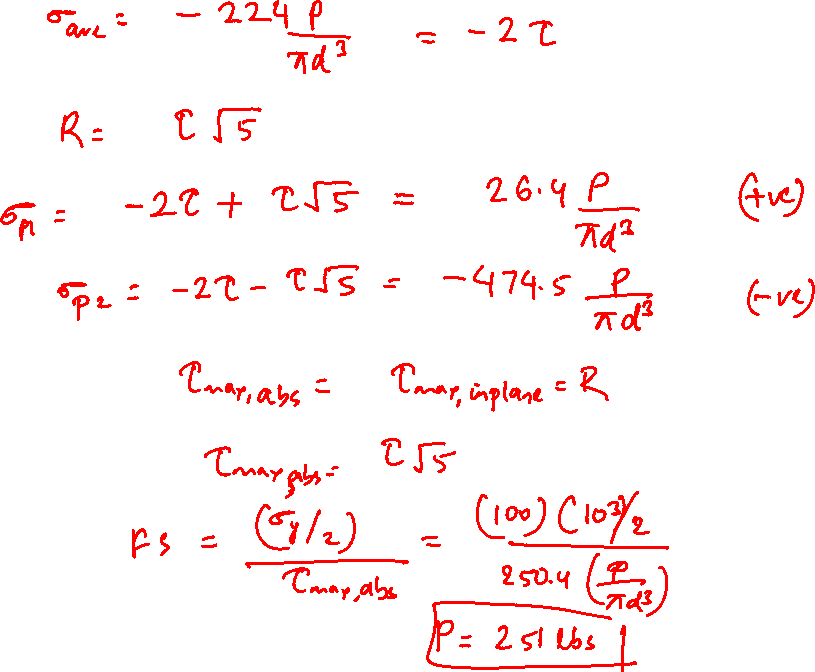 σave = - 224 P / πd³ = - 2 τ
R = τ √5
σp1 = - 2τ + τ√5 = 26.4 P / πd³ (+ve)
σp2 = - 2τ - τ√5 = - 474.5 P / πd³ (-ve)
τmax,abs = τmax,inplane = R
τmax,abs = τ√5
FS = (σy/2) / τmax,abs = (100) (10³)/2 / 250.4 (P / πd³)
P = 251 lbs